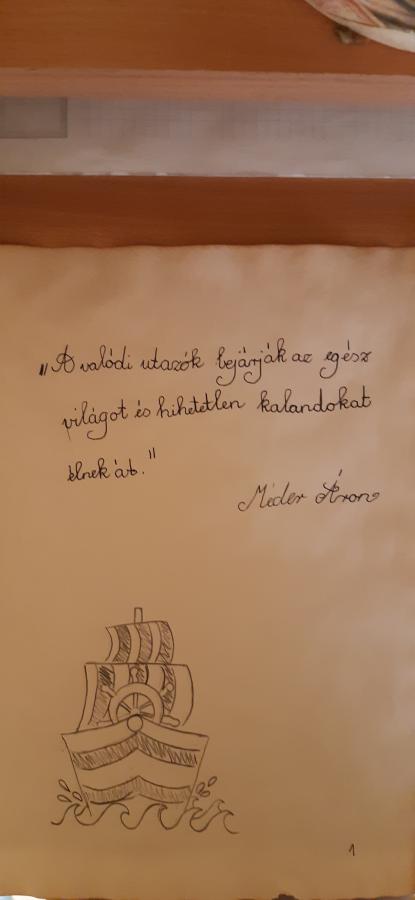 "A valódi utazók bejárják az egész
világot és hihetetlen kalandokat
élnek át."
Méder Áron
1